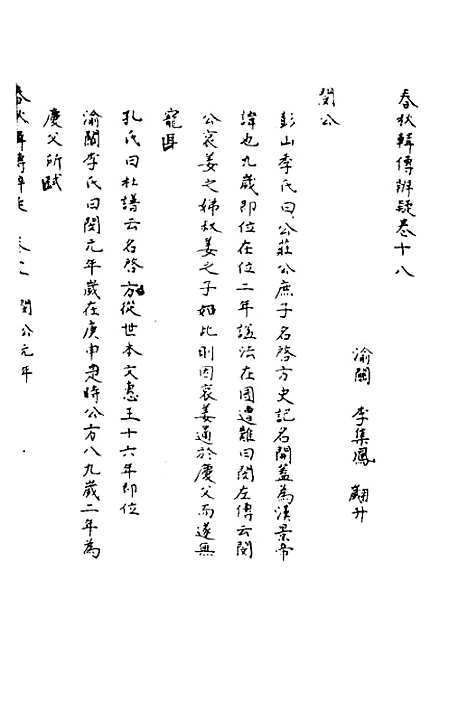 春秋輯傳辨疑卷十八
渝關 李集鳳 翽升
閔公
彭山李氏曰公莊公庶子名啓方史記名開蓋為漢景帝
諱也九歲即位在位二年謚法在國遭難曰閔左傳云閔
公哀姜之娣叔姜之子如此則因哀姜通於慶父而遂無
寵耳
孔氏曰杜譜云名啓方從世本文惠王十六年即位
渝關李氏曰閔元年歲在庚申是時公方八九歲二年為
慶父所弒
春秋輯傳辨疑 卷十八 閔公元年